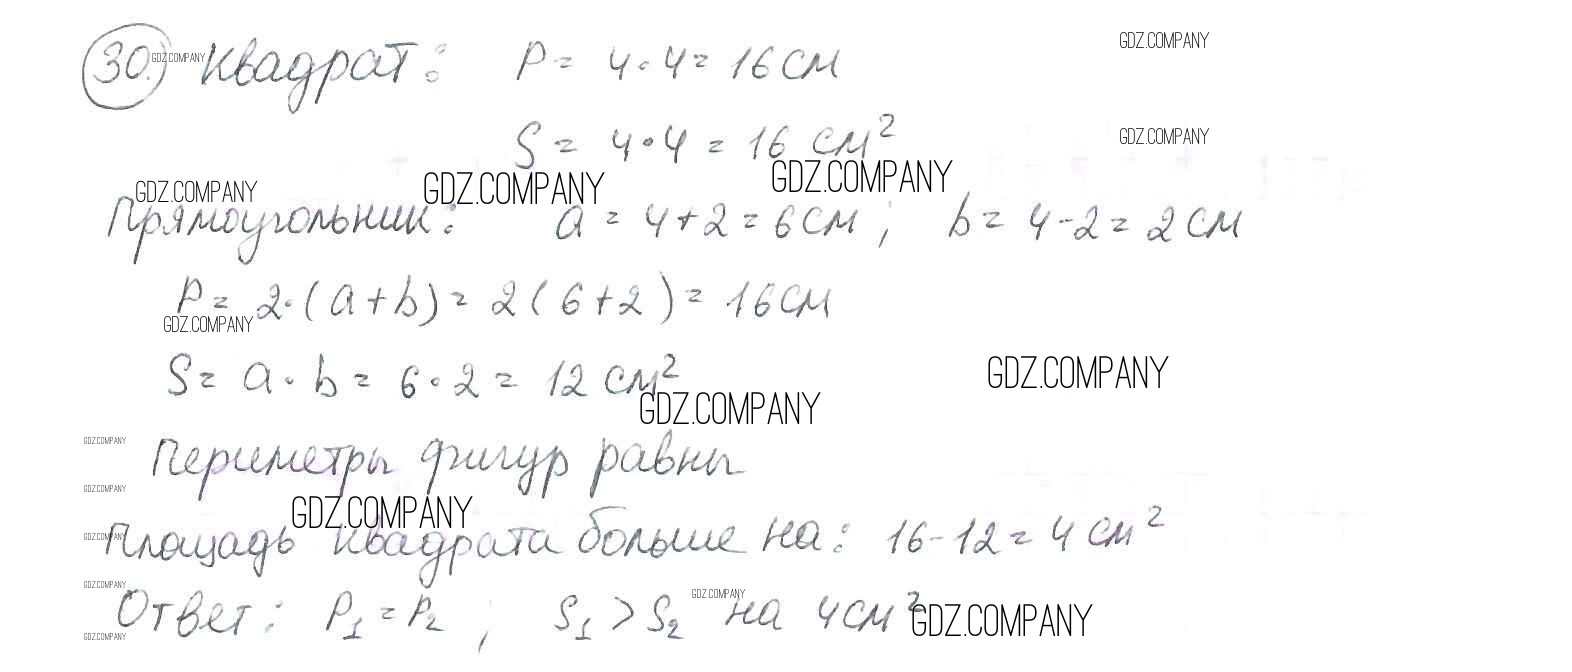 30. Квадрат: P = 4·4 = 16 см
GDZ.COMPANY
GDZ.COMPANY
S = 4·4 = 16 см²
GDZ.COMPANY
GDZ.COMPANY
GDZ.COMPANY
GDZ.COMPANY
Прямоугольник: a = 4+2 = 6 см; b = 4-2 = 2 см
P = 2·(a+b) = 2(6+2) = 16 см
GDZ.COMPANY
S = a·b = 6·2 = 12 см²
GDZ.COMPANY
GDZ.COMPANY
GDZ.COMPANY
Периметры фигур равны
GDZ.COMPANY
GDZ.COMPANY
GDZ.COMPANY
Площадь квадрата больше на: 16-12 = 4 см²
GDZ.COMPANY
GDZ.COMPANY
Ответ: P₁ = P₂; S₁ > S₂ на 4 см²
GDZ.COMPANY
GDZ.COMPANY